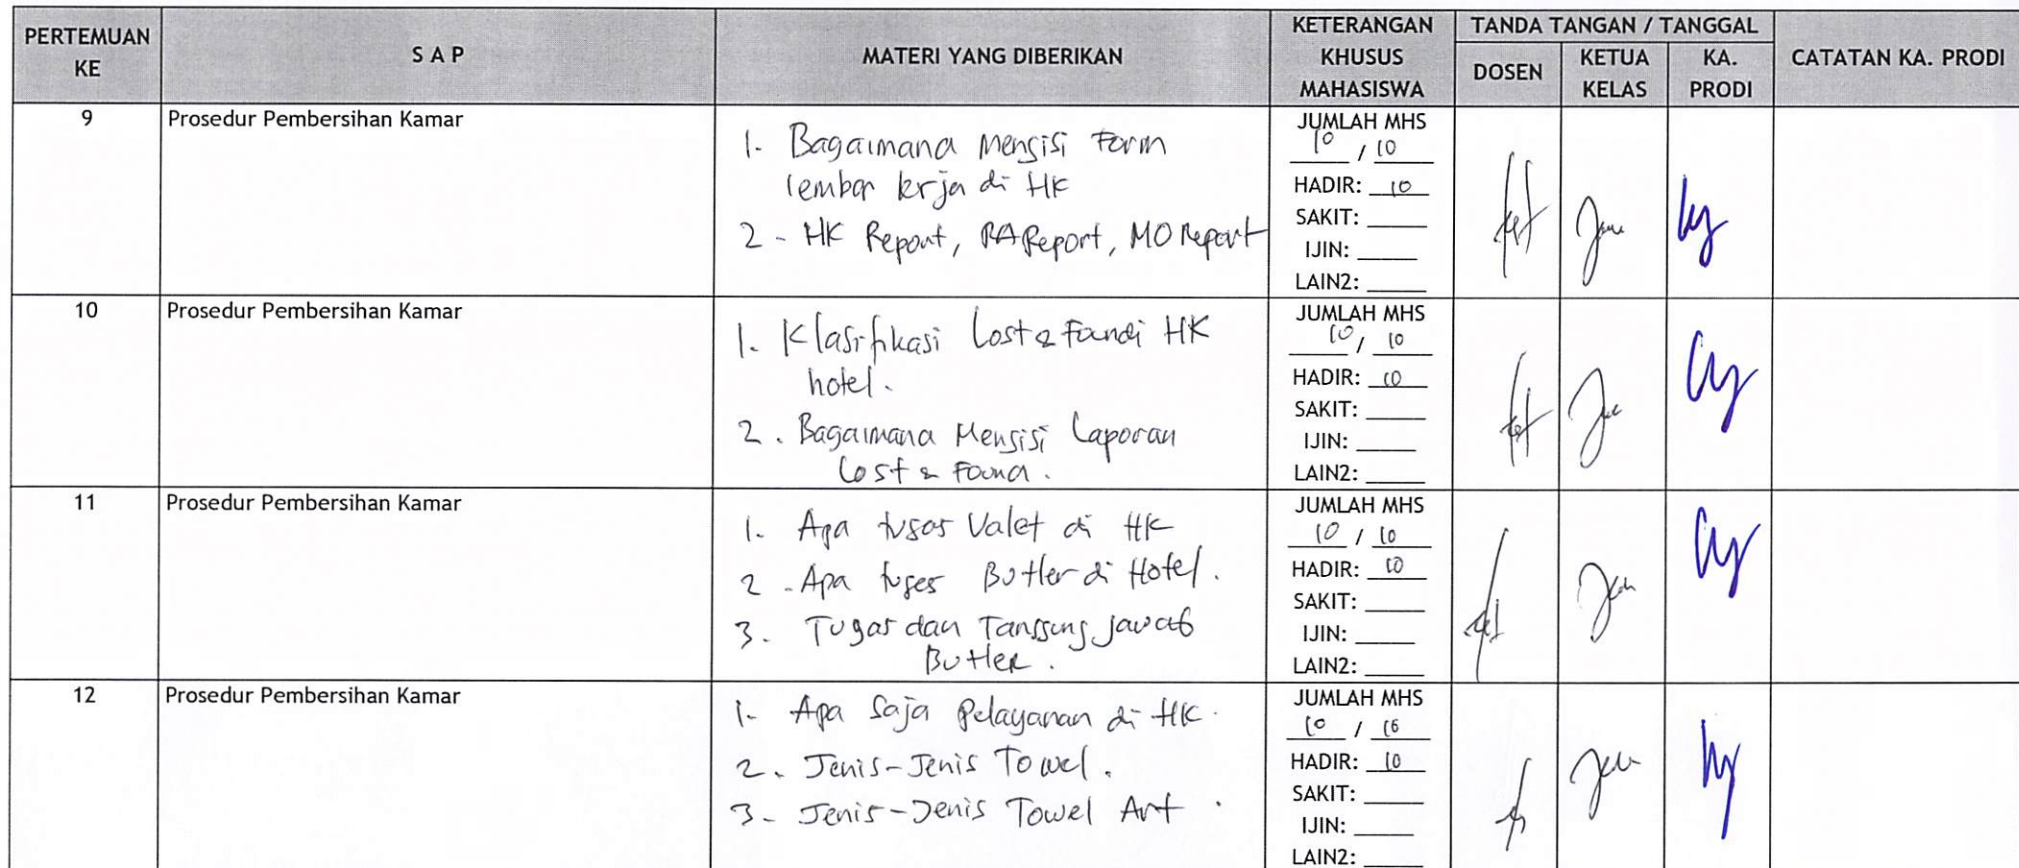 PERTEMUAN KE
S A P
MATERI YANG DIBERIKAN
KETERANGAN KHUSUS MAHASISWA
TANDA TANGAN / TANGGAL
DOSEN
KETUA KELAS
KA. PRODI
CATATAN KA. PRODI
9
Prosedur Pembersihan Kamar
1. Bagaimana Mengisi Form
lembar krja di HK
2 - HK Report, RA Report, MO Report
JUMLAH MHS
10 / 10
HADIR: 10
SAKIT:
IJIN:
LAIN2:
10
Prosedur Pembersihan Kamar
1. Klasifikasi Lost & Found HK
hotel.
2. Bagaimana Mengisi Laporan
Lost & Found.
JUMLAH MHS
10 / 10
HADIR: 10
SAKIT:
IJIN:
LAIN2:
11
Prosedur Pembersihan Kamar
1. Apa tugas Valet di HK
2. Apa tugas Butler di Hotel.
3. Tugas dan Tanggung jawab
Butler.
JUMLAH MHS
10 / 10
HADIR: 10
SAKIT:
IJIN:
LAIN2:
12
Prosedur Pembersihan Kamar
1. Apa Saja Pelayanan di HK.
2. Jenis-Jenis Towel.
3. Jenis-Jenis Towel Art.
JUMLAH MHS
10 / 10
HADIR: 10
SAKIT:
IJIN:
LAIN2: